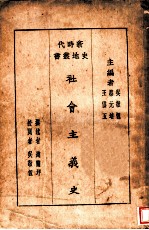 新時代
史地叢書
主編者
吳敬恆
蔡元培
王雲五
社會主義史
校閱者 吳敬恆